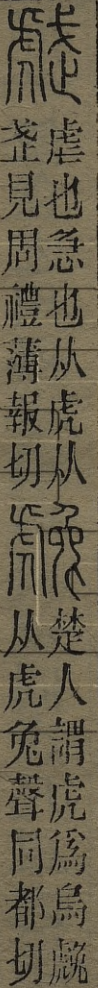 虣虐也急也从虎从武見周禮薄報切䖘楚人謂虎爲烏䖘从虎兔聲同都切